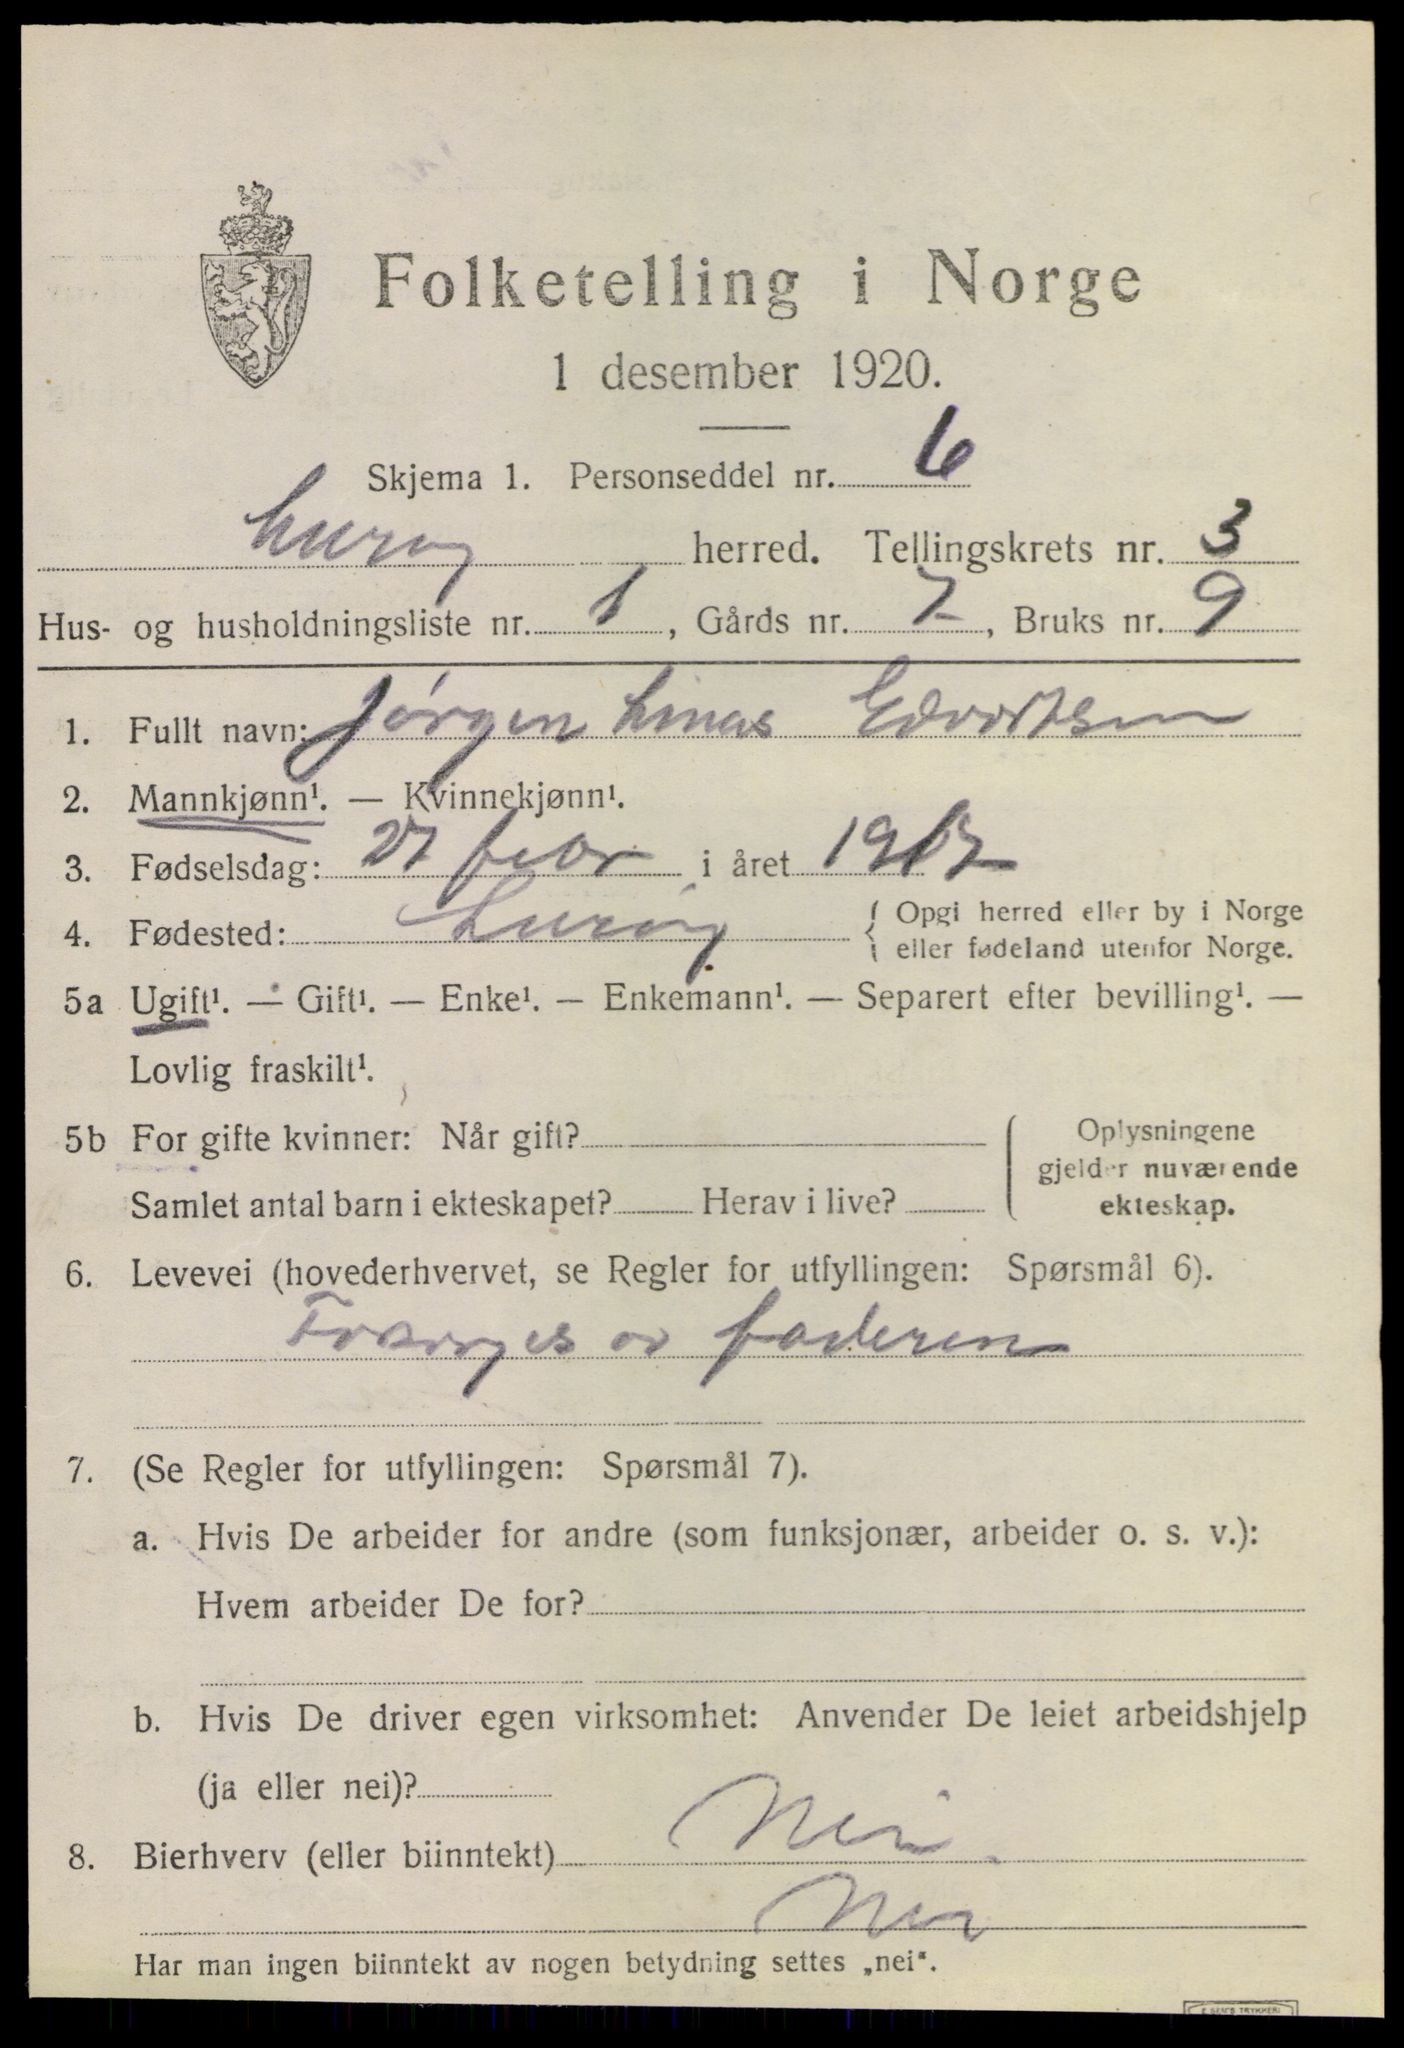 Folketelling i Norge
1 desember 1920.
Skjema 1. Personseddel nr. 6
Lurøy herred. Tellingskrets nr. 3
Hus- og husholdningsliste nr. 1, Gårds nr. 7, Bruks nr. 9
1. Fullt navn: Jørgen Linus Edvartsen
2. Mannkjønn¹. — Kvinnekjønn¹.
3. Fødselsdag: 27 febr i året
4. Fødested: Lurøy { Opgi herred eller by i Norge
eller fødeland utenfor Norge.
5a Ugift¹. — Gift¹. — Enke¹. — Enkemann¹. — Separert efter bevilling¹. —
Lovlig fraskilt¹.
5b For gifte kvinner: Når gift?
Oplysningene
gjelder nuværende
ekteskap.
Samlet antal barn i ekteskapet? Herav i live?
6. Levevei (hovederhvervet, se Regler for utfyllingen: Spørsmål 6).
Forsørges av faderen
7. (Se Regler for utfyllingen: Spørsmål 7).
a. Hvis De arbeider for andre (som funksjonær, arbeider o. s. v.):
Hvem arbeider De for?
b. Hvis De driver egen virksomhet: Anvender De leiet arbeidshjelp
(ja eller nei)?
8. Bierhverv (eller biinntekt) Nei.
Nei
Har man ingen biinntekt av nogen betydning settes „nei“.